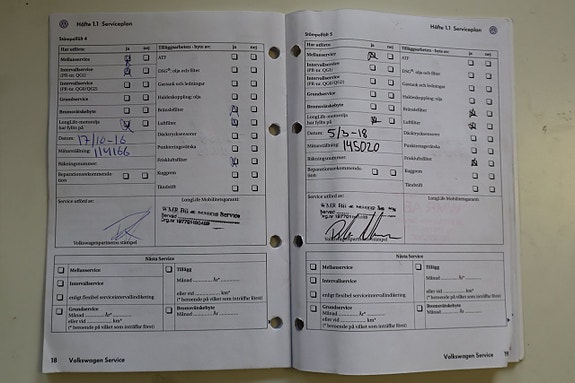 Häfte 1.1 Serviceplan
Stämpelfält 4
Har utförts: ja nej
Mellanservice
Intervallservice
(PR-nr. QG1)
Intervallservice
(PR-nr. QG0/QG2)
Grundservice
Bromsvätskebyte
LongLife-motorolja
har fyllts på
Datum: 17/10-16
Mätarställning: 114166
Räkningsnummer:
Reparationsrekommenda-
tion
Tilläggsarbeten - byte av: ja nej
ATF
DSG® olja och filter
Gastank och ledningar
Haldexkoppling: olja
Bränslefilter
Luftfilter
Däcktryckssensor
Punkteringsvätska
Friskluftsfilter
Kuggrem
Tändstift
Service utförd av:
LongLife Mobilitetsgaranti:
Volkswagenpartnerns stämpel
Nästa Service
Mellanservice
Intervallservice
enligt flexibel serviceintervallindikering
Grundservice
Månad ........... År*
eller vid ........... km*
(* beroende på vilket som inträffar först)
Tillägg
Månad ........... År*
eller vid ........... km*
(* beroende på vilket som inträffar först)
Bromsvätskebyte
Månad ........... År
18 Volkswagen Service
Häfte 1.1 Serviceplan
Stämpelfält 5
Har utförts: ja nej
Mellanservice
Intervallservice
(PR-nr. QG1)
Intervallservice
(PR-nr. QG0/QG2)
Grundservice
Bromsvätskebyte
LongLife-motorolja
har fyllts på
Datum: 5/3-18
Mätarställning: 145020
Räkningsnummer:
Reparationsrekommenda-
tion
Tilläggsarbeten - byte av: ja nej
ATF
DSG® olja och filter
Gastank och ledningar
Haldexkoppling: olja
Bränslefilter
Luftfilter
Däcktryckssensor
Punkteringsvätska
Friskluftsfilter
Kuggrem
Tändstift
Service utförd av:
LongLife Mobilitetsgaranti:
Volkswagenpartnerns stämpel
Nästa Service
Mellanservice
Intervallservice
enligt flexibel serviceintervallindikering
Grundservice
Månad ........... År*
eller vid ........... km*
(* beroende på vilket som inträffar först)
Tillägg
Månad ........... År*
eller vid ........... km*
(* beroende på vilket som inträffar först)
Bromsvätskebyte
Månad ........... År
Volkswagen Service